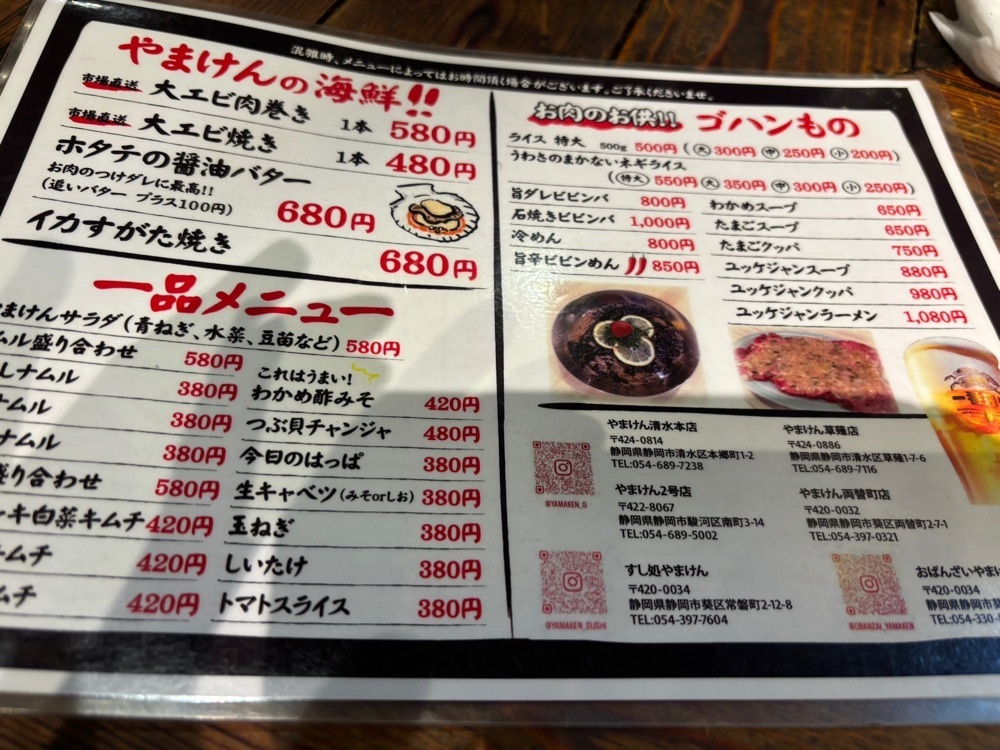 混雑時、メニューによってはお時間頂く場合がございます。ご了承くださいませ。
やまけんの海鮮!!
市場直送 大エビ肉巻き 1本 580円
市場直送 大エビ焼き 1本 480円
ホタテの醤油バター
お肉のつけダレに最高!!
(追いバター プラス100円) 680円
イカすがた焼き 680円
一品メニュー
まけんサラダ(青ねぎ、水菜、豆苗など) 580円
ムル盛り合わせ 580円
しナムル 380円
ナムル 380円
ナムル 380円
盛り合わせ 580円
キ白菜キムチ 420円
キムチ 420円
ムチ 420円
これはうまい!
わかめ酢みそ 420円
つぶ貝チャンジャ 480円
今日のはっぱ 380円
生キャベツ(みそorしお) 380円
玉ねぎ 380円
しいたけ 380円
トマトスライス 380円
お肉のお供!! ゴハンもの
ライス 特大 500g 500円 (大 300円 中 250円 小 200円)
うわさのまかないネギライス
(特大 550円 大 350円 中 300円 小 250円)
旨ダレビビンバ 800円
石焼きビビンバ 1,000円
冷めん 800円
旨辛ビビンめん 850円
わかめスープ 650円
たまごスープ 650円
たまごクッパ 750円
ユッケジャンスープ 880円
ユッケジャンクッパ 980円
ユッケジャンラーメン 1,080円
やまけん清水本店
〒424-0814
静岡県静岡市清水区本郷町1-2
TEL:054-689-7238
やまけん草薙店
〒424-0886
静岡県静岡市清水区草薙1-7-6
TEL:054-689-7116
@YAMAKEN_G
やまけん2号店
〒422-8067
静岡県静岡市駿河区南町3-14
TEL:054-689-5002
やまけん両替町店
〒420-0032
静岡県静岡市葵区両替町2-7-1
TEL:054-397-0321
すし処やまけん
〒420-0034
静岡県静岡市葵区常磐町2-12-8
TEL:054-397-7604
@YAMAKEN_SUSHI
おばんざいやまけ
〒420-0034
静岡県静岡市
TEL:054-330-
@OBANZAI_YAMAKEN